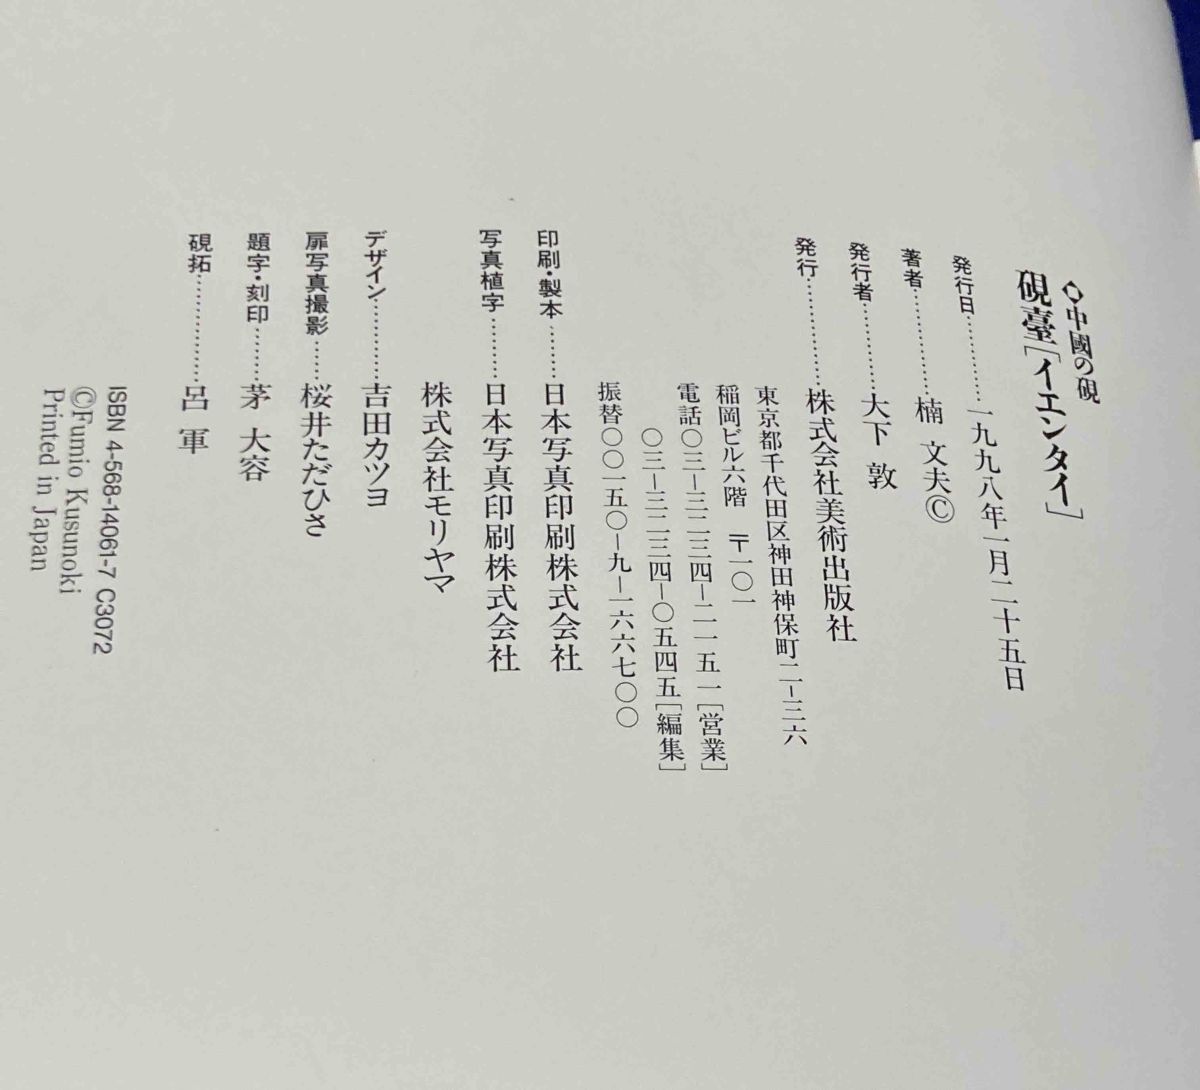 ◇中國の硯
硯臺［イエンタイ］
発行日………一九九八年一月二十五日
著者………楠 文夫©
発行者………大下 敦
発行………株式会社美術出版社
東京都千代田区神田神保町二−三六
稲岡ビル六階 〒一〇一
電話〇三−三二三四−二一五一［営業］
〇三−三二三四−〇五四五［編集］
振替〇〇一五〇−九−一六六七〇〇
印刷・製本………日本写真印刷株式会社
写真植字………日本写真印刷株式会社
株式会社モリヤマ
デザイン………吉田カツヨ
扉写真撮影………桜井ただひさ
題字・刻印………茅 大容
硯拓………呂 軍
ISBN 4-568-14061-7 C3072
©Fumio Kusunoki
Printed in Japan